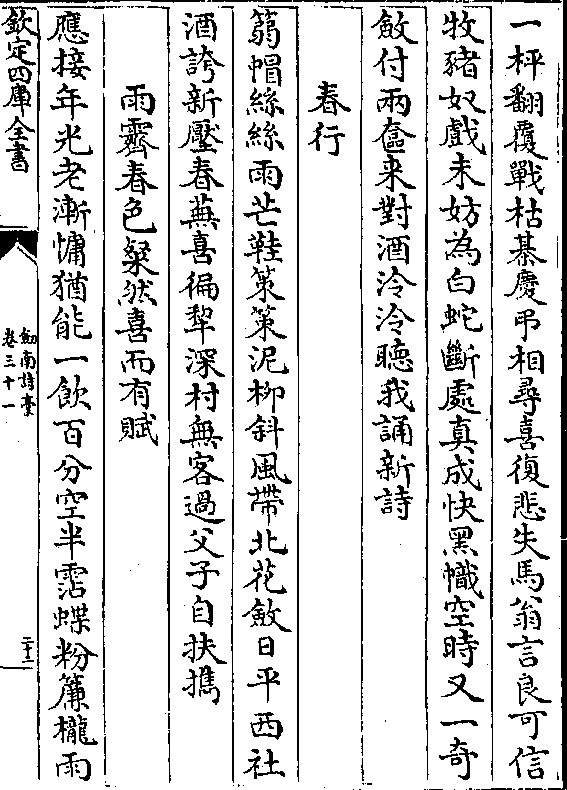 一枰翻覆戰枯棊慶弔相尋喜復悲失馬翁言良可信
牧豬奴戲未妨為白蛇斷處真成快黑幟空時又一奇
斂付兩奩来對酒泠泠聴我誦新詩
春行
蒻帽絲絲雨芒鞋策策泥栁斜風帶北花斂日平西社
酒誇新壓春蕪喜徧犂深村無客過父子自扶擕
雨霽春色粲然喜而有賦
應接年光老漸慵猶能一飲百分空半霑蝶粉簾櫳雨
欽定四庫全書
劍南詩藁
卷三十一
二十三